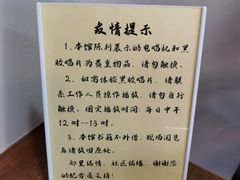 友情提示
1.本馆陈列展示的电唱机和黑
胶唱片为贵重物品，请勿触换。
2.如需体验黑胶唱片，请联
系工作人员操作播放，请勿自行
触换。固定播放时间：每日中午
12时--13时。
3.本馆书籍不外借，现场阅览
后请放回原处。
邻里结情，社区结缘，谢谢您
的配合及支持！